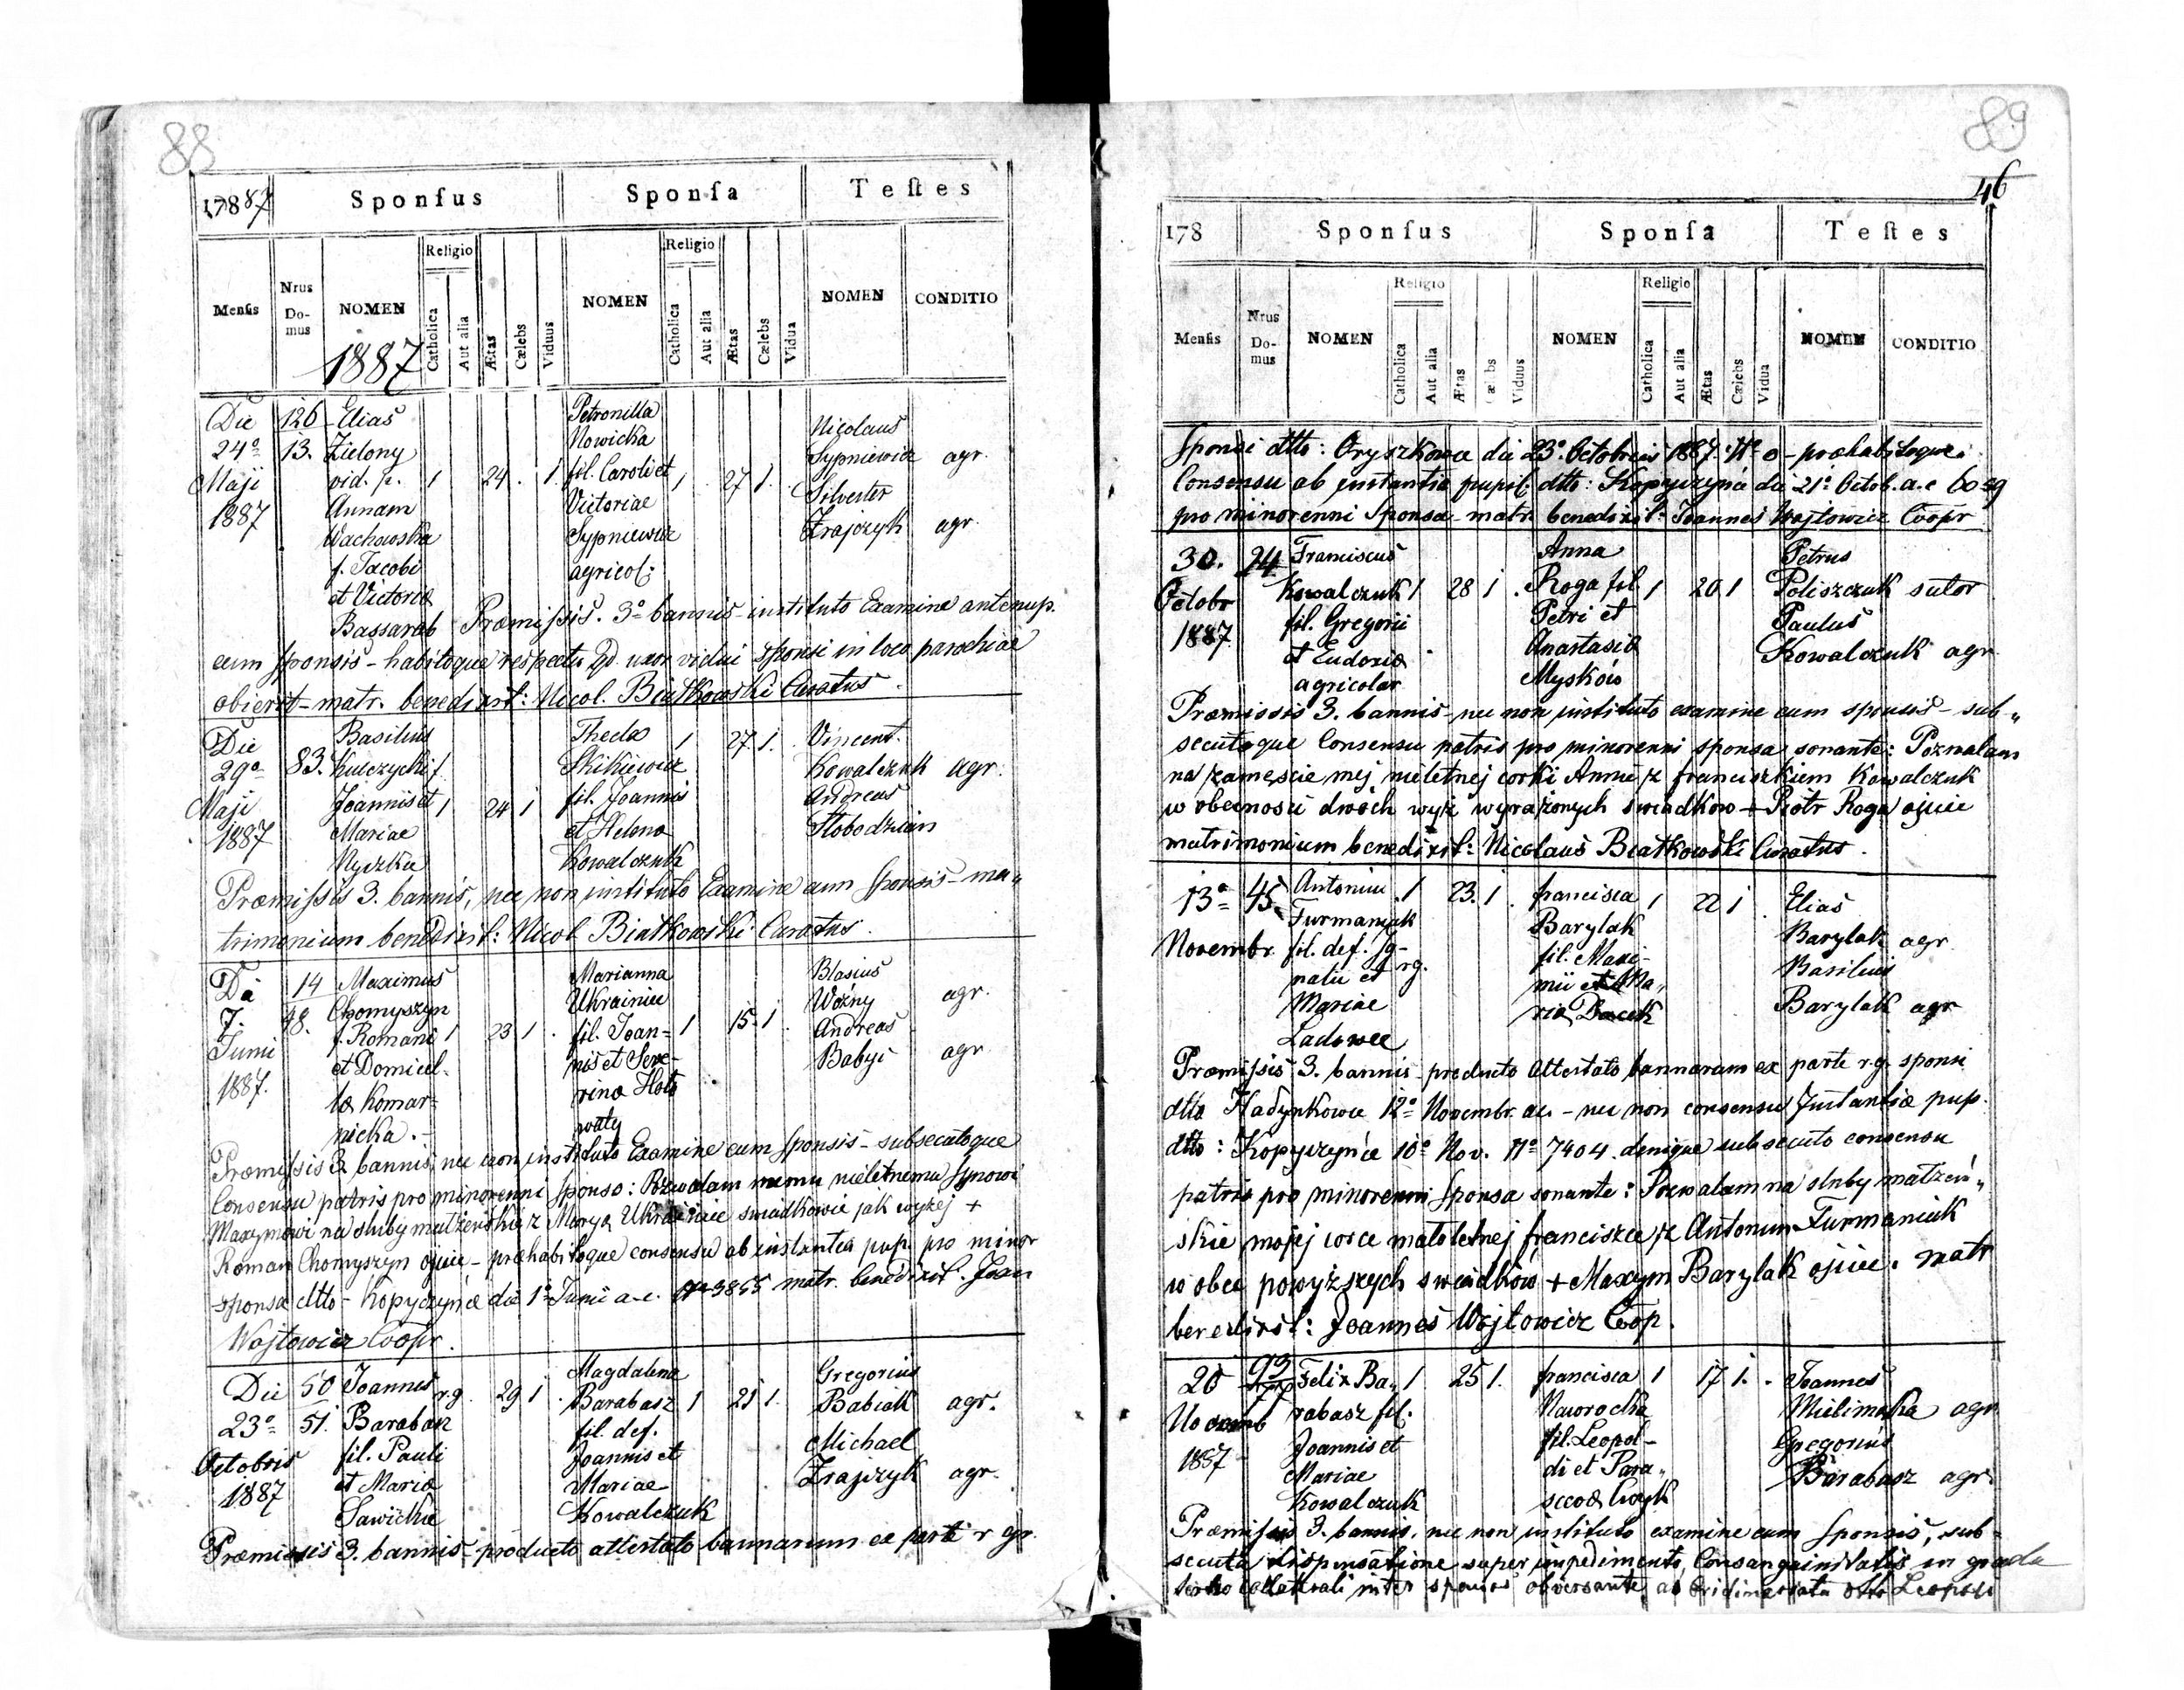 88
17887 Sponsus Sponsa Testes
Mensis Nrus Domus NOMEN Religio Catholica Aut alia Ætas Cælebs Viduus NOMEN Religio Catholica Aut alia Ætas Cælebs Vidua NOMEN CONDITIO
1887
Die 126 Elias Petronilla Nicolaus
24º 13. Zielony Nowicka Sypniewicz agr.
Maji vid. p. 1 24. 1. fil. Caroli et 1 27 1. Silvester
1887 Annam Victoriae Zrajczyk agr.
Wachowska Sypniewicz
f. Jacobi agricol:
et Victoriæ
Bassarab Præmissis. 3º bannis instituto Examine antenup.
cum sponsis - habitoque respectu qd. uxor vidui sponsi in loco parochiae
obierit - matr. benedixit: Nicol. Białkowski Curatus.
Die Basilius Thecla 1 27 1. Vincent.
29º 83. Kulczycki f. Skikiewicz Kowalczuk agr.
Maji Joannis et 1 24 1 fil. Joannis Andreas
1887 Mariae et Helena Słobodzian
Nyczka Kowalczuk
Præmissis 3. bannis, nec non instituto Examine cum sponsis - ma„
trimonium benedixit: Nicol. Białkowski Curatus.
Die 14 Maximus Marianna Blasius
7. 48. Chomyszyn Ukrainiec Woźny agr.
Junii f. Romani 1 23 1. fil. Joan= 1 15 1. Andreas
1887. et Domicel- nis et Seve- Babyi agr
læ Komar- rina Hoło
nicka. waty
Præmissis 3. bannis, nec non instituto Examine cum sponsis - subsecutoque
Consensu patris pro minorenni sponso: Pozwalam memu nieletnemu synowi
Maxymowi na śluby małżeńskie z Maryą Ukrainiec swiadkowie jak wyżej +
Roman Chomyszyn ojciec - præhabitoque consensu ab instantia pup. pro minor
sponsa dtto - Kopyczyńce die 1º Junii a.c. Nº 3855 matr. benedixit. Joan
Wojtowicz Coopr.
Die 50 Joannes r.g. 29 1. Magdalena Gregorius
23º 51. Barabasz Barabasz 1 21 1. Babiak agr.
Octobris fil. Pauli fil. def. Michael
1887 et Mariæ Joannis et Zrajczyk agr.
Sawickie Mariae
Kowalczuk
Præmissis 3. bannis - producto attestato bannarum ex parte r. gr.
89
46
178 Sponsus Sponsa Testes
Mensis Nrus Domus NOMEN Religio Catholica Aut alia Ætas Cælebs Viduus NOMEN Religio Catholica Aut alia Ætas Cælebs Vidua NOMEN CONDITIO
Sponsi dtto: Oryszkowce die 23º Octobris 1887. Nº 0 - præhabitoque
Consensu ab instantia pupil. dtto: Kopyczyńce die 21º Octob. a.c.
pro minorenni Sponsa matr. benedixit: Joannes Wojtowicz Coopr
30. 24 Franciscus Anna Petrus
Octobr Kowalczuk 1 28 1. Roga fil. 1 20 1 Poliszczuk sutor
1887. fil. Gregorii Petri et Paulus
et Eudoxiæ Anastasiæ Kowalczuk agr.
agricolar Myśków
Præmissis 3. bannis - nec non instituto examine cum sponsis - sub„
secutoque Consensu patris pro minorenni sponsa sonante: Pozwalam
na zamęście mej nieletnej corki Annie z franciszkiem Kowalczuk
w obecnosci dwóch wyż wyrażonych swiadkow + Piotr Roga ojciec
matrimonium benedixit: Nicolaus Białkowski Curatus.
13º 45. Antonius 1 23. 1. francisca 1 22 1 Elias
Furmaniuk Barylak Barylak agr.
Novembr. fil. def. Ig- rg. fil. Maxi- Basilius
natii et mii et Ma„ Barylak agr
Mariae riæ Bacek
Ladowce
Præmissis 3. bannis - producto attestato bannarum ex parte r.g. sponsi
dtto Hadynkowce 12º Novembr. a.c. - nec non consensu Instantiæ pup.
dtto: Kopyczyńce 10º Nov. Nº 7404. denique subsecuto consensu
patris pro minorenni Sponsa sonante: Pozwalam na sluby małżeń„
skie mojej corce małoletnej franciszce z Antonim Furmaniuk
w obec powyższych swiadków + Maxym Barylak ojciec. matr
benedixit: Joannes Wojtowicz Coop.
20 93 Felix Ba„ 1 25 1. francisca 1 17 1. Joannes
Novemb rabasz fil. Naworocka agr
1887 Joannis et fil. Leopol- Gregorius
Mariae di et Para„ Barabasz agr.
Kowalczuk
Præmissis 3. bannis, nec non instituto examine cum sponsis, sub=
secuta dispensatione super impedimento, Consanguinitatis in gradu
tertio collaterali inter sponsos obversante ab Ordinariatu dtto Leopoli